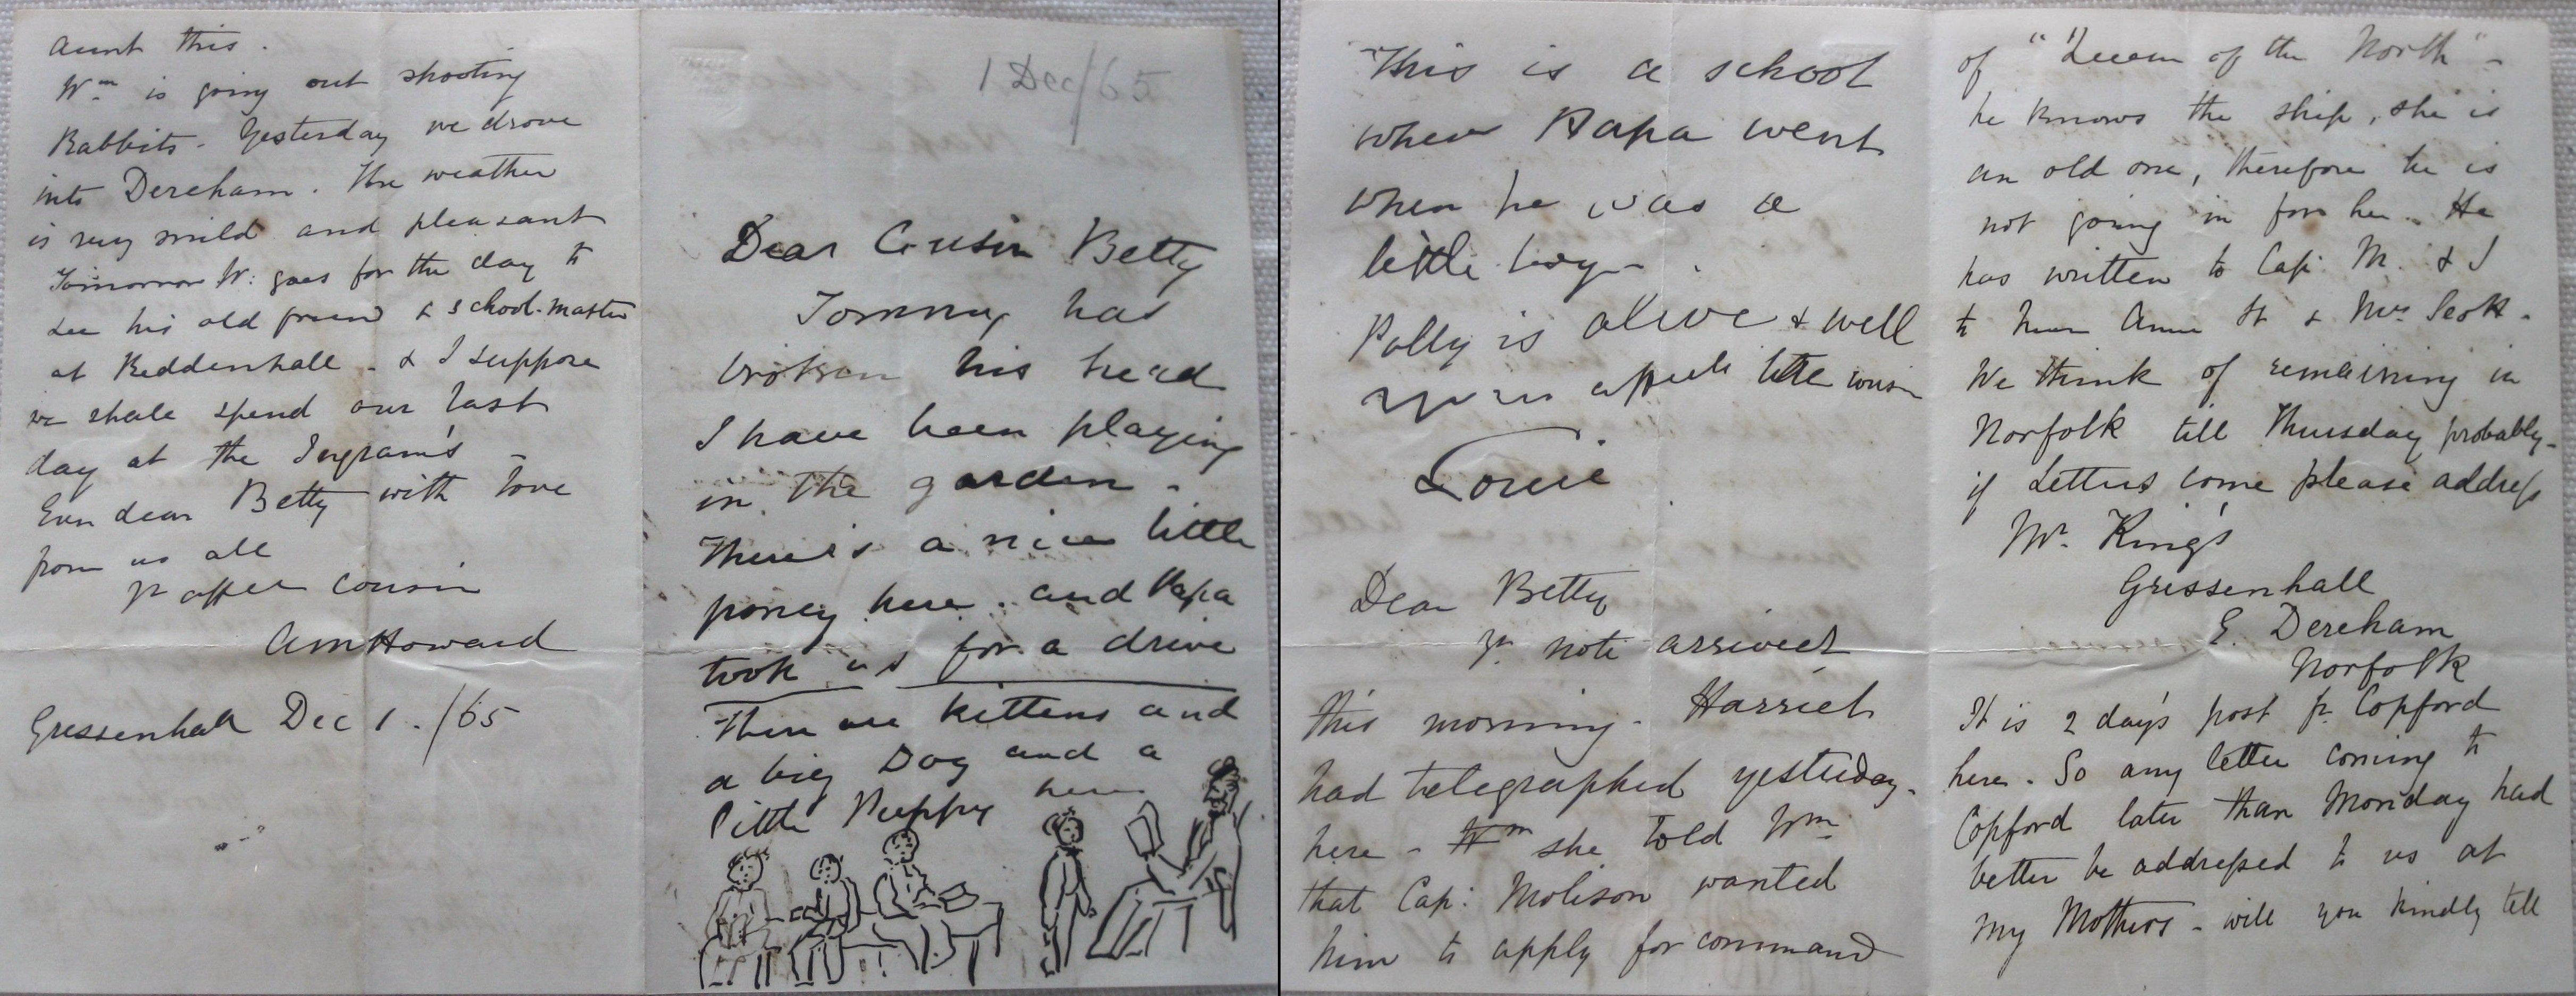 1 Dec/65
Dear Cousin Betty
Tommy has
broken his head
I have been playing
in the garden -
There is a nice little
poney here. and Papa
took us for a drive
There are kittens and
a big Dog and a
little Puppy here
This is a school
where Papa went
when he was a
little boy -
Polly is alive & well
your affecte little cousin
Louie
Dear Betty
Yr. note arrived
this morning - Harriet
had telegraphed yesterday.
here - Wm she told Wm
that Cap: Molison wanted
him to apply for command
of "Queen of the North" -
he knows the ship, she is
an old one, therefore he is
not going in for her. He
has written to Cap: M. & I
to Anne St & Mrs Scott.
We think of remaining in
Norfolk till Thursday probably -
if Letters come please address
Mr. King's
Gressenhall
E. Dereham
Norfolk
It is 2 day's post fr. Copford
here. So any letter coming to
Copford later than Monday had
better be addressed to us at
my Mothers - will you kindly tell
Aunt this.
Wm is going out shooting
Rabbits - Yesterday we drove
into Dereham. The weather
is very mild and pleasant
Tomorrow W: goes for the day to
see his old friend & school-master
at Reddenhall - & I suppose
we shall spend our last
day at the Ingram's -
Ever dear Betty with love
from us all
Yr affec cousin
AM Howard
Gressenhall Dec 1./65